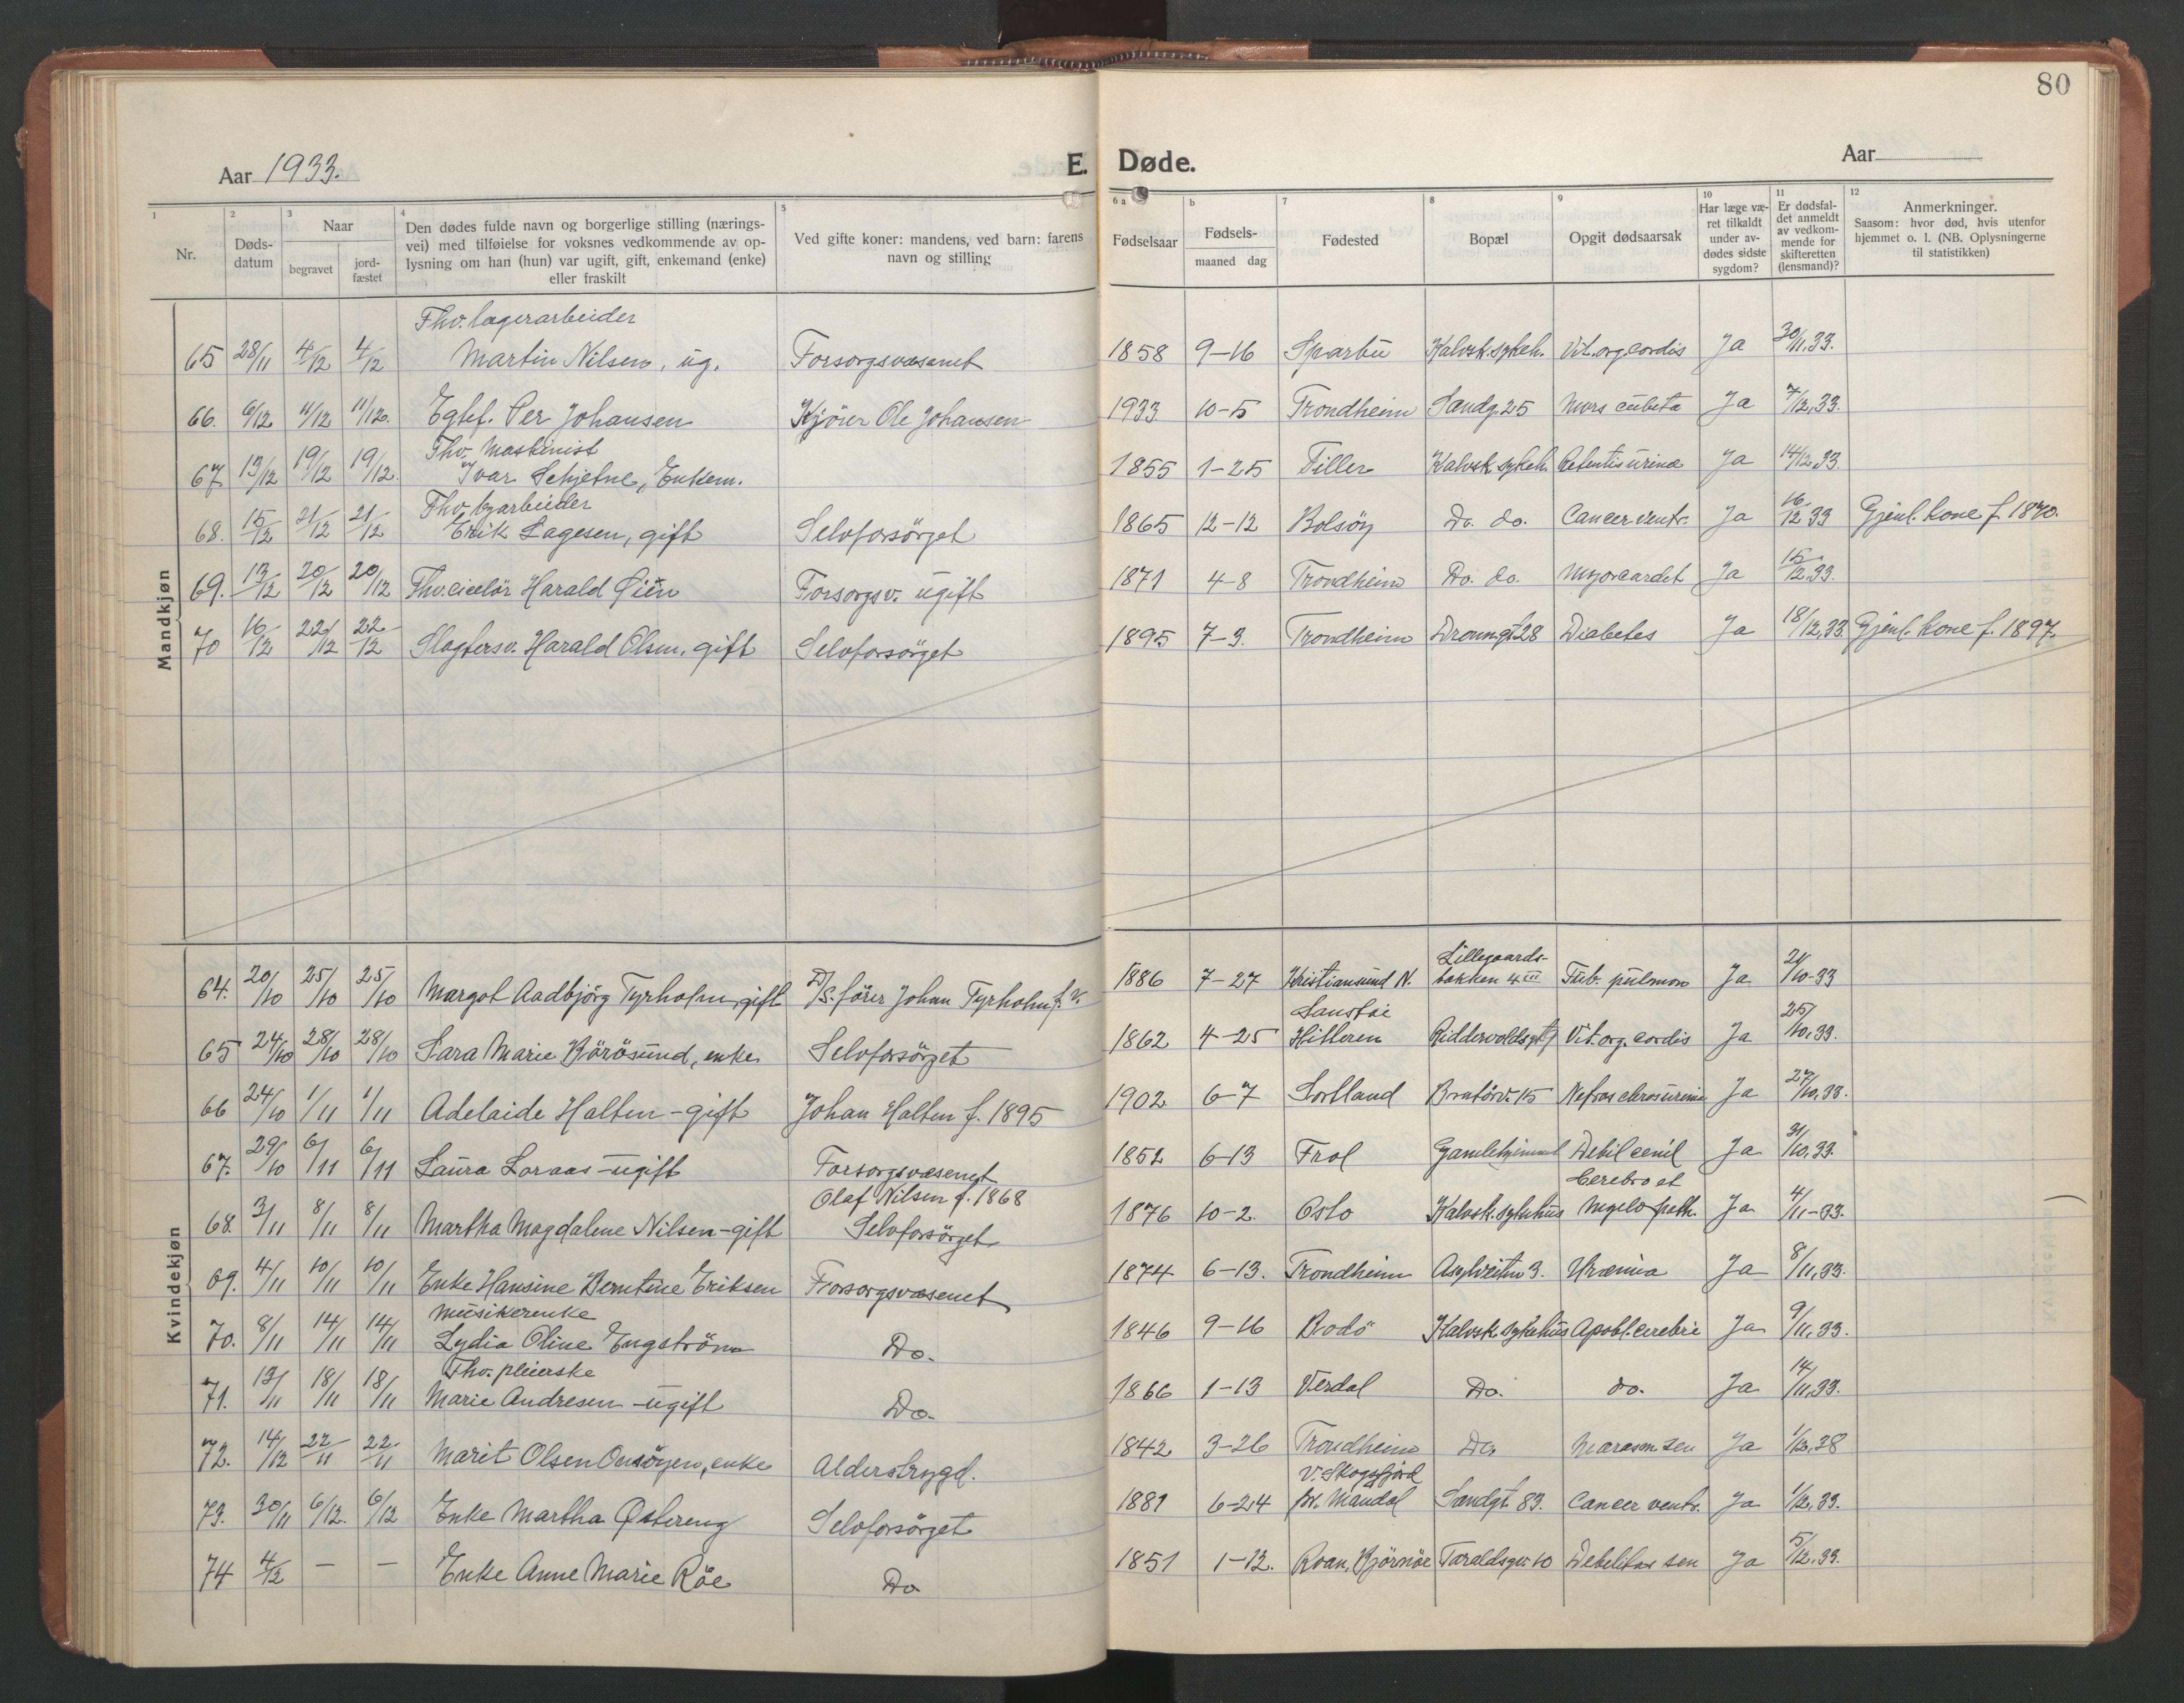 80
Aar 1933.
E. Døde.
Aar
1 2 3 4 5 6 a b 7 8 9 10 11 12
Nr.
Døds-
datum
Naar
begravet
jord-
fæstet
Den dødes fulde navn og borgerlige stilling (nærings-
vei) med tilføielse for voksnes vedkommende av op-
lysning om han (hun) var ugift, gift, enkemand (enke)
eller fraskilt
Ved gifte koner: mandens, ved barn: farens
navn og stilling
Fødselsaar
Fødsels-
maaned dag
Fødested
Bopæl
Opgit dødsaarsak
Har læge væ-
ret tilkaldt
under av-
dødes sidste
sygdom?
Er dødsfal-
det anmeldt
av vedkom-
mende for
skifteretten
(lensmand)?
Anmerkninger.
Saasom: hvor død, hvis utenfor
hjemmet o. l. (NB. Oplysningerne
til statistikken)
Mandkjøn
Fhv. lagerarbeider
65 28/11 4/12 4/12 Martin Nilsen, ug. Forsorgsvæsenet 1858 9-16 Sparbu Kalvsk. sykeh. Vit. org. cordis Ja 30/11.33.
66. 6/12 11/12 11/12. Egtef. Per Johansen Kjörer Ole Johansen 1933 10-5 Trondheim Sandg. 25 Mors subita Ja 7/12.33.
Fhv. Maskinist
67 13/12 19/12 19/12. Ivar Schjetne, Enkem. 1855 1-25 Tiller Kalvsk. sykeh. Retentio urinæ Ja 14/12.33.
Fhv. byarbeider
68. 15/12 21/12 21/12 Erik Lagesen, gift Selvforsörget 1865 12-12 Bolsöy Do. do. Cancer ventr. Ja 16/12 33 Gjenl. kone f. 1870.
69. 13/12 20/12 20/12 Fhv. ciselör Harald Øien Forsorgsv. ugift 1871 4-8 Trondheim Do. do. Myocardit Ja 15/12.33.
70 16/12 22/12 22/12 Slagtersv. Harald Olsen, gift Selvforsörget 1895 7-3. Trondheim Dronngt 28 Diabetes Ja 18/12.33. Gjenl. kone f. 1897.
Kvindekjøn
Lillegaards-
64. 20/10 25/10 25/10 Margot Aadbjörg Tyrholm, gift D/S. förer Johan Tyrholm 1886 7-27 Kristiansund N. bakken 4 III Tub. pulmon Ja 21/10-33
65 24/10 28/10 28/10 Sara Marie Börösund, enke Selvforsörget 1862 4-25 Hitteren Vit. org. cordis Ja 25/10.33.
66 24/10 1/11 1/11 Adelaide Halten - gift Johan Halten f. 1895 1902 6-7 Sortland 15 Ja 27/10.33.
67. 29/10 6/11 6/11 Laura Loraas - ugift Forsorgsvæsenet 1852 6-13 Frol Gamlehjemmet Debil senil Ja 31/10.33.
Olaf Nilsen f. 1868 Cerebro et
68. 3/11 8/11 8/11 Martha Magdalene Nilsen - gift Selvforsörget 1876 10-2. Oslo Kalvsk. sykehus Myelopath. Ja 4/11-33.
69. 4/11 10/11 10/11 Enke Hansine Berntine Eriksen Forsorgsvæsenet 1874 6-13. Trondheim Asylveiten 3. Uræmia Ja 8/11.33.
Musikerenke
70. 8/11 14/11 14/11 Lydia Oline Engström Do. 1846 9-16 Bodö Kalvsk. sykehus Apopl. cerebri Ja 9/11.33.
Fhv. pleierske
71. 13/11 18/11 18/11 Marie Andresen - ugift Do. 1866 1-13 Verdal Do. do. Ja 14/11.33.
72. 14/12 22/11 22/11 Marit Olsen enke Alderstrygd. 1842 3-26 Trondheim Do Marasm sen Ja 1/12.38
V. Skogsfjord
73. 30/11 6/12. 6/12 Enke Martha Østereng Selvforsörget 1881 6-24 pr. Mandal Sandgt. 83. Cancer ventr. Ja 1/12.33.
74 4/12 - - Enke Anne Marie Röe Do 1851 1-12. Roan, Björnör Taraldsgv. 10 Debilitas sen Ja 5/12.33.